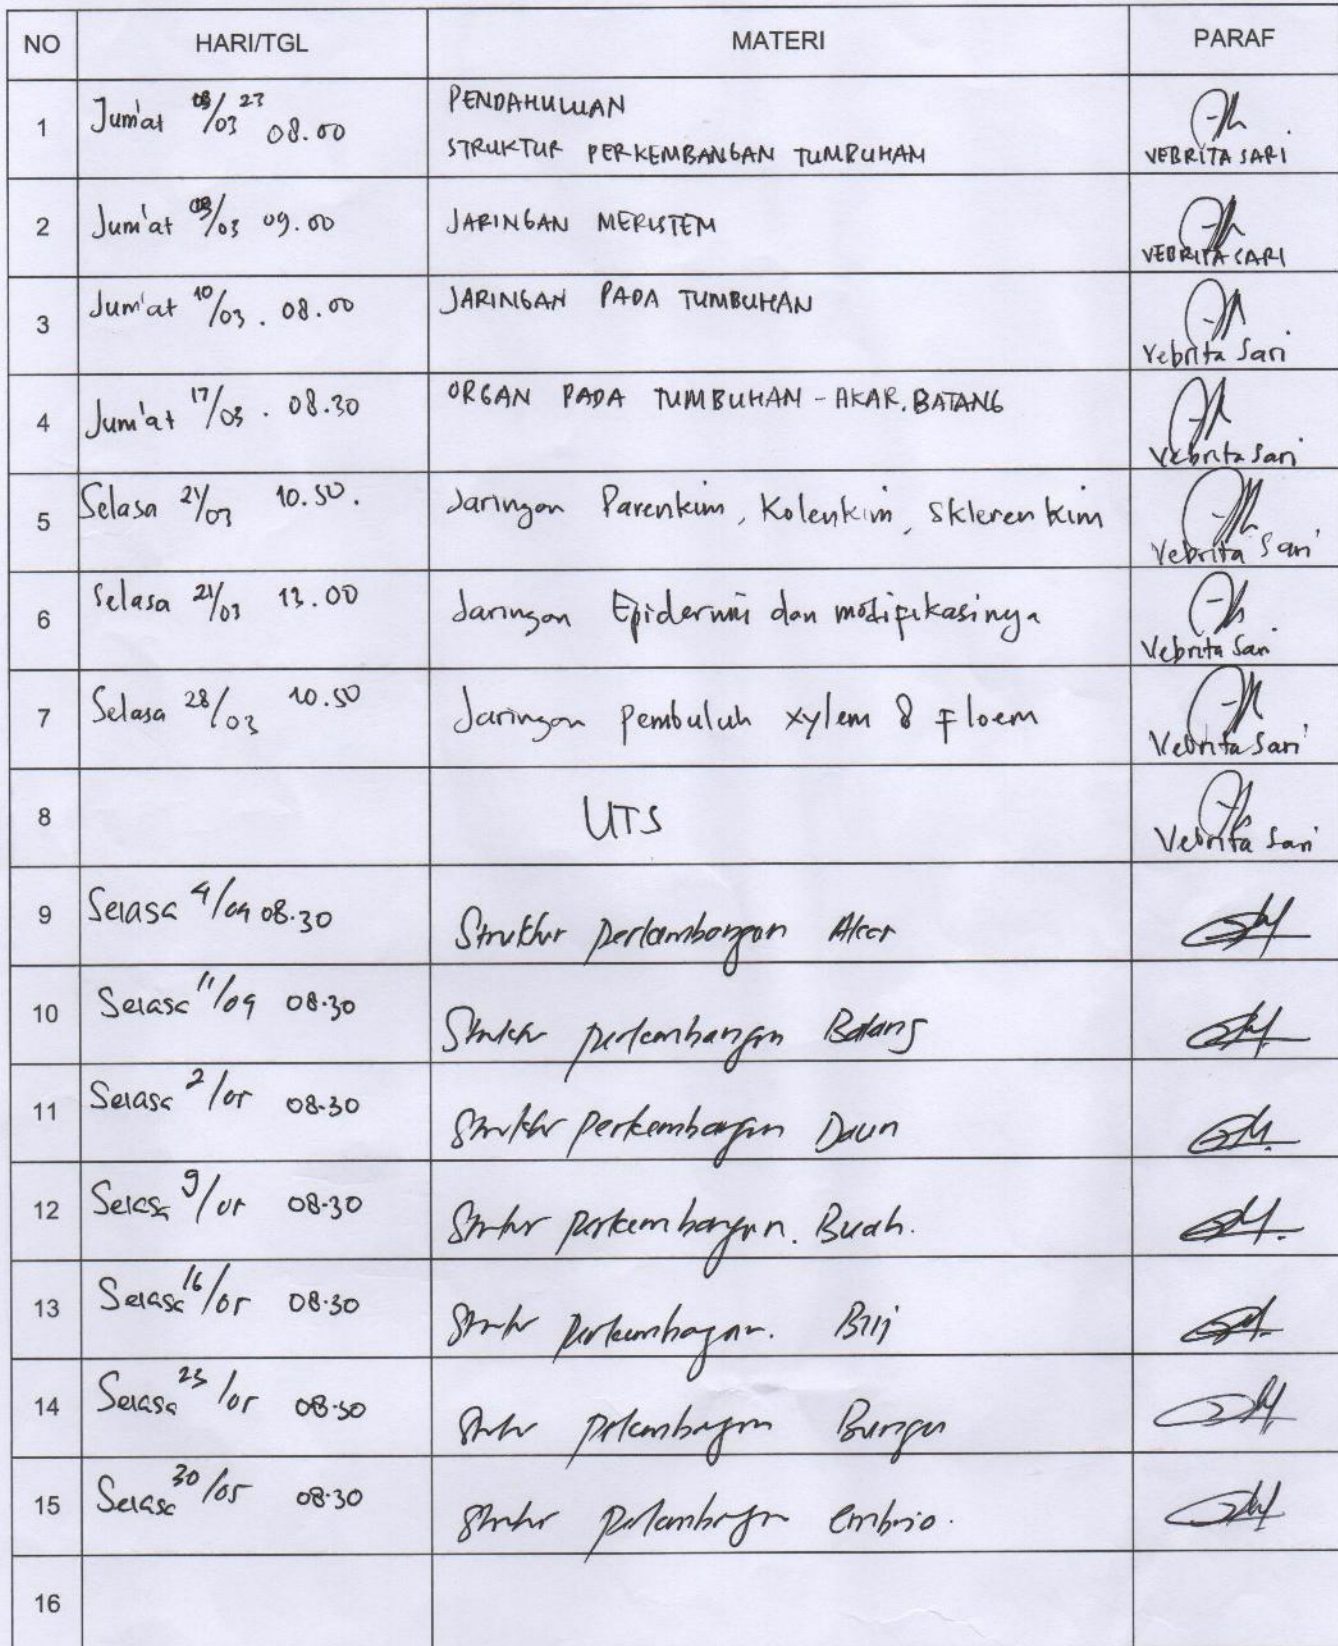 NO HARI/TGL MATERI PARAF
1 Jum'at 03/03 23 08.00 PENDAHULUAN
STRUKTUR PERKEMBANGAN TUMBUHAN VEBRITA SARI
2 Jum'at 03/03 09.00 JARINGAN MERISTEM VEBRITA SARI
3 Jum'at 10/03. 08.00 JARINGAN PADA TUMBUHAN Vebrita Sari
4 Jum'at 17/03. 08.30 ORGAN PADA TUMBUHAN - AKAR, BATANG Vebrita Sari
5 Selasa 21/03 10.50. Jaringan Parenkim, Kolenkim, Sklerenkim Vebrita Sari
6 Selasa 21/03 13.00 Jaringan Epidermis dan modifikasinya Vebrita Sari
7 Selasa 28/03 10.50 Jaringan Pembuluh xylem & Floem Vebrita Sari
8 UTS Vebrita Sari
9 Selasa 4/04 08.30 Struktur perkembangan Akar
10 Selasa 11/04 08.30 Struktur perkembangan Batang
11 Selasa 2/05 08.30 Struktur perkembangan Daun
12 Selasa 9/05 08.30 Struktur perkembangan. Buah.
13 Selasa 16/05 08.30 Struktur perkembangan. Biji
14 Selasa 23/05 08.30 Struktur perkembangan Bunga
15 Selasa 30/05 08.30 Struktur perkembangan embrio.
16